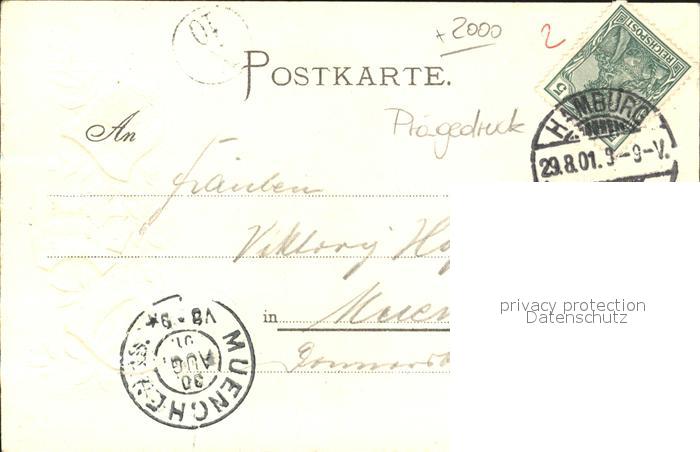 10
+ 2000
2
REICHSPOST
5
POSTKARTE.
HAMBURG
An
Prägedruck
29.8.01. 9-9-V.
Fräulein
Viktory
privacy protection
Datenschutz
in
MUENCHEN
30
AUG.
01.
V8-9*